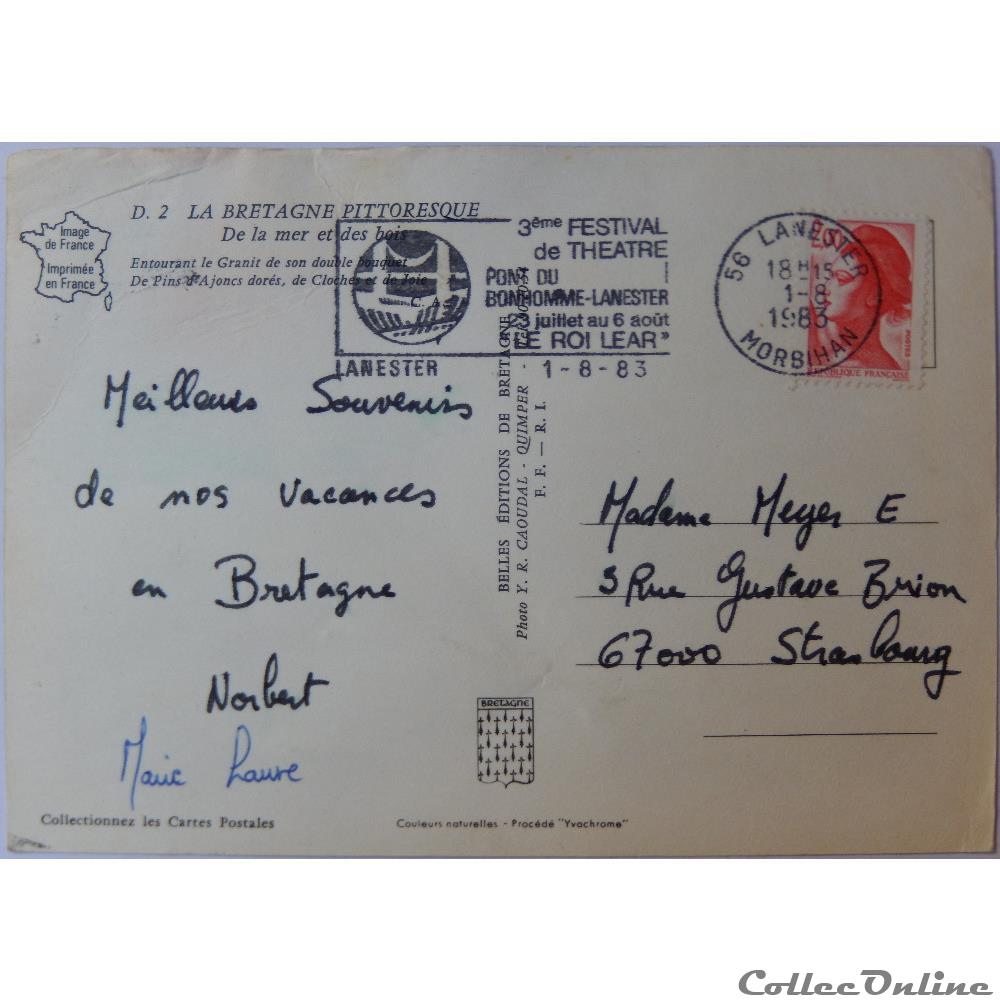 Image
de France
Imprimée
en France
D. 2 LA BRETAGNE PITTORESQUE
De la mer et des bois
Entourant le Granit de son double bouquet
De Pins d'Ajoncs dorés, de Cloches et de Joie
C. A.
3ème FESTIVAL
de THEATRE
PONT DU
BONHOMME-LANESTER
23 juillet au 6 août
"LE ROI LEAR"
LANESTER
1-8-83
56 LANESTER
18H15
1-8
1983
MORBIHAN
2,00
POSTES
REPUBLIQUE FRANÇAISE
Meilleurs Souvenirs
de nos vacances
en Bretagne
Norbert
Marie Laure
BELLES ÉDITIONS DE BRETAGNE
Photo Y. R. CAOUDAL - QUIMPER -
F. F. — R. I.
Madame Meyer E
3 Rue Gustave Brion
67000 Strasbourg
BRETAGNE
Collectionnez les Cartes Postales
Couleurs naturelles - Procédé "Yvachrome"
CollecOnline